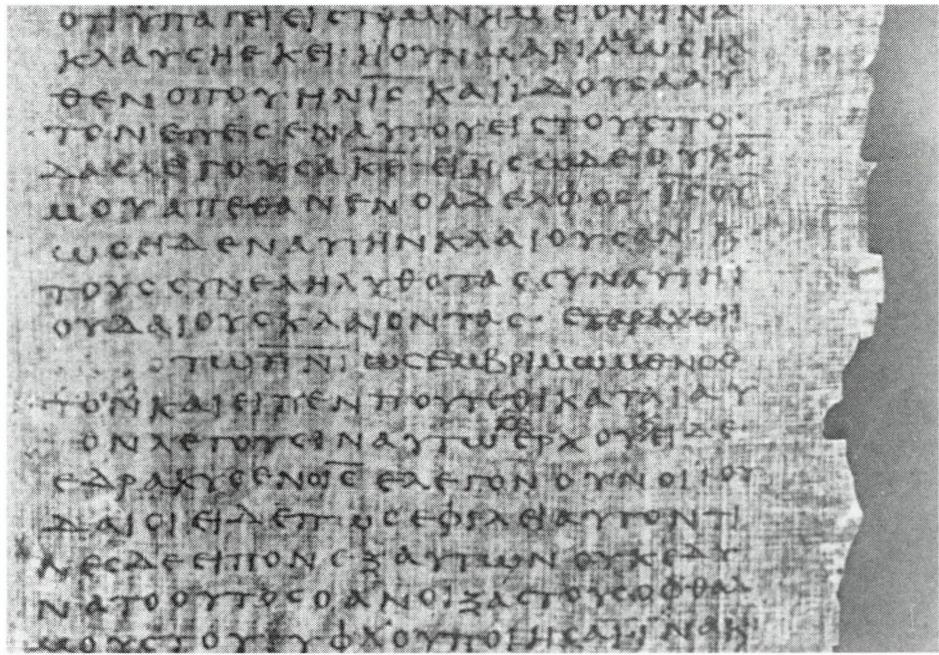 ΟΤΙ ΫΠΑΓΕΙ ΕΙϹ ΤΟ ΜΝΗΜΕΙΟΝ ΙΝΑ
ΚΛΑΥϹΗ ΕΚΕΙ· Η ΟΥΝ ΜΑΡΙΑ ΩϹ ΗΛ
ΘΕΝ ΟΠΟΥ ΗΝ Ι̅Ϲ̅ ΚΑΙ ΪΔΟΥϹΑ ΑΥ
ΤΟΝ ΕΠΕϹΕΝ ΑΥΤΟΥ ΕΙϹ ΤΟΥϹ ΠΟ·
ΔΑϹ ΛΕΓΟΥϹΑ Κ̅Ε̅ ΕΙ ΗϹ ΩΔΕ ΟΥΚ Α̅
ΜΟΥ ΑΠΕΘΑΝΕΝ Ο ΑΔΕΛΦΟϹ· Ι̅Ϲ̅ ΟΥ
ΩϹ ΕΙΔΕΝ ΑΥΤΗΝ ΚΛΑΙΟΥϹΑΝ Κ
ΤΟΥϹ ϹΥΝΕΛΗΛΥΘΟΤΑϹ ϹΥΝ ΑΥΤΗ Ι
ΟΥΔΑΙΟΥϹ ΚΛΑΙΟΝΤΑϹ· ΕΤΑΡΑΧΘΗ
ΤΩ Π̅Ν̅Ι̅ ΩϹ ΕΜΒΡΙΜΩΜΕΝΟϹ
ΤΟΝ ΚΑΙ ΕΙΠΕΝ ΠΟΥ ΤΕΘΙΚΑΤΑΙ ΑΥ
ΟΝ ΛΕΓΟΥϹΙΝ ΑΥΤΩ ΕΡΧΟΥ ΕΙΔΕ
ΕΔΡΑΚΥϹΕΝ Ο Ι̅Ϲ̅ ΕΛΕΓΟΝ ΟΥΝ ΟΙ ΙΟΥ
ΔΑΙΟΙ ΕΙΔΕ ΠΩϹ ΕΦΙΛΕΙ ΑΥΤΟΝ ΤΙ
ΝΕϹ ΔΕ ΕΙΠΟΝ ΕΞ ΑΥΤΩΝ ΟΥΚ ΕΔΥ
ΝΑΤΟ ΟΥΤΟϹ Ο ΑΝΟΙΞΑϹ ΤΟΥϹ ΟΦΘΑΛ
ΜΟΥϹ ΤΟΥ ΤΥΦΛΟΥ